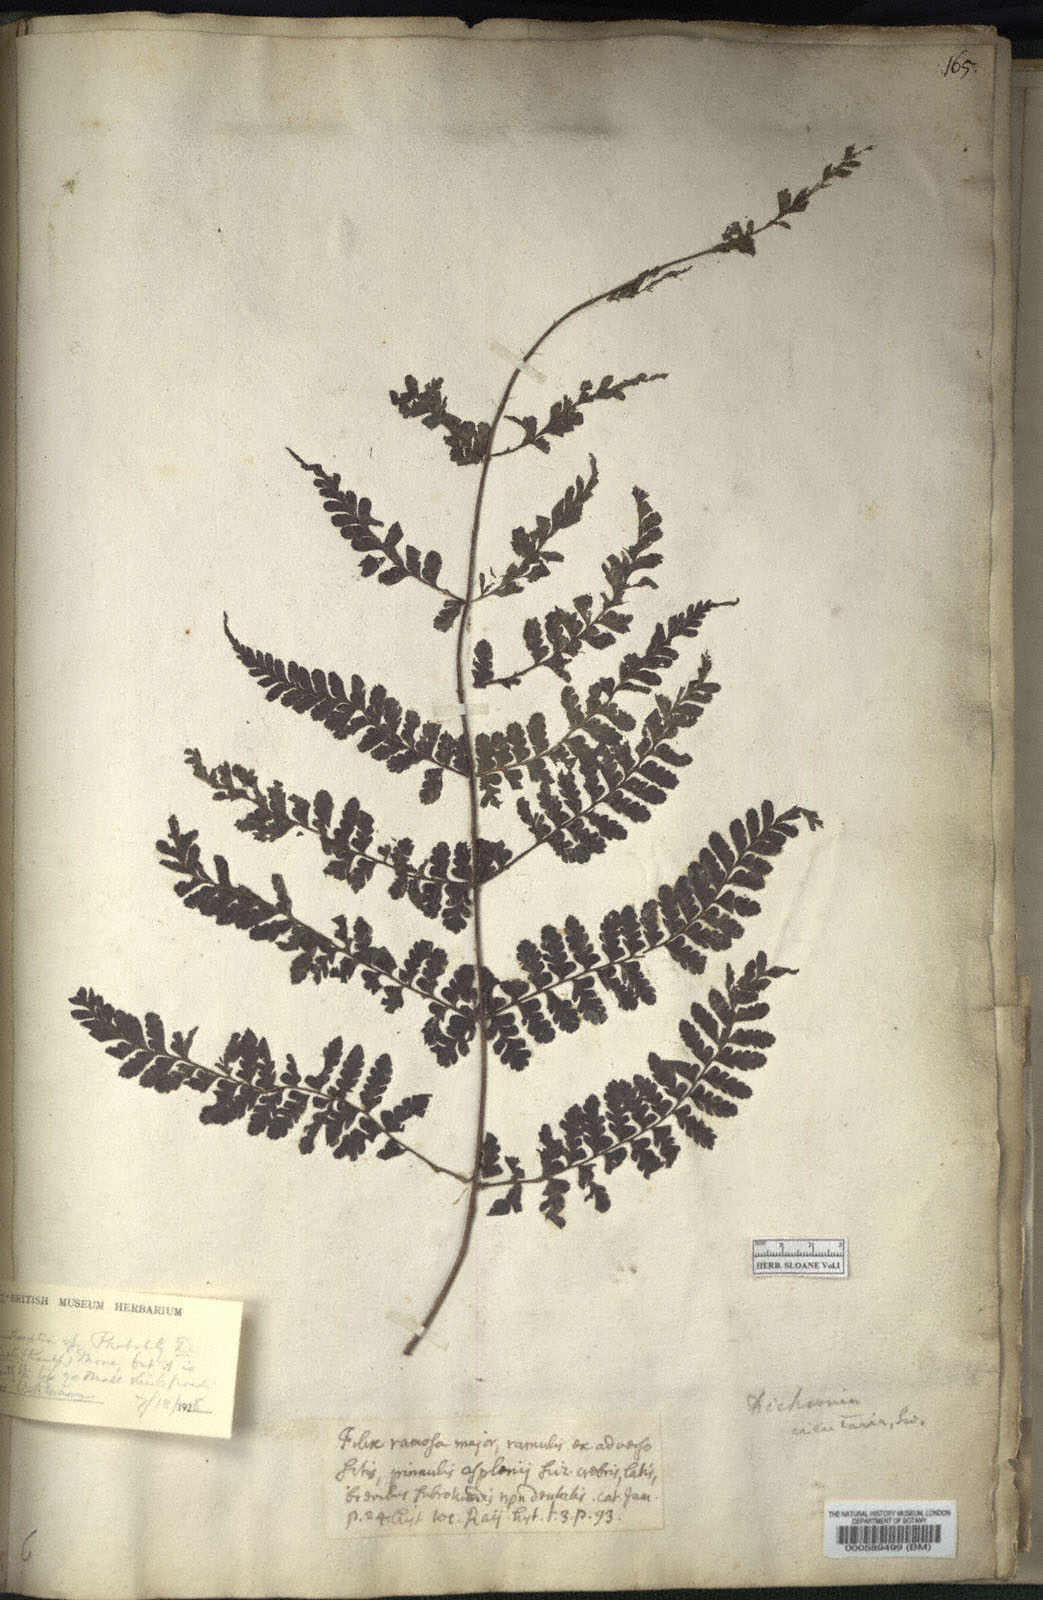 165.
HERB. SLOANE Vol.I
BRITISH MUSEUM HERBARIUM
sp. Probably D.
Moore, but it is
7/10/1928
Dicksonia
cicutaria, Sw.
Filix ramosa major, ramulis ex adverso
sitis, pinnulis asplenij sive crebris, latis,
brevibus subrotundis non dentatis. Cat. Jam.
p. 24. Hist. Raij hist. t. 3. p. 93.
THE NATURAL HISTORY MUSEUM, LONDON
DEPARTMENT OF BOTANY
000589499 (BM)
6